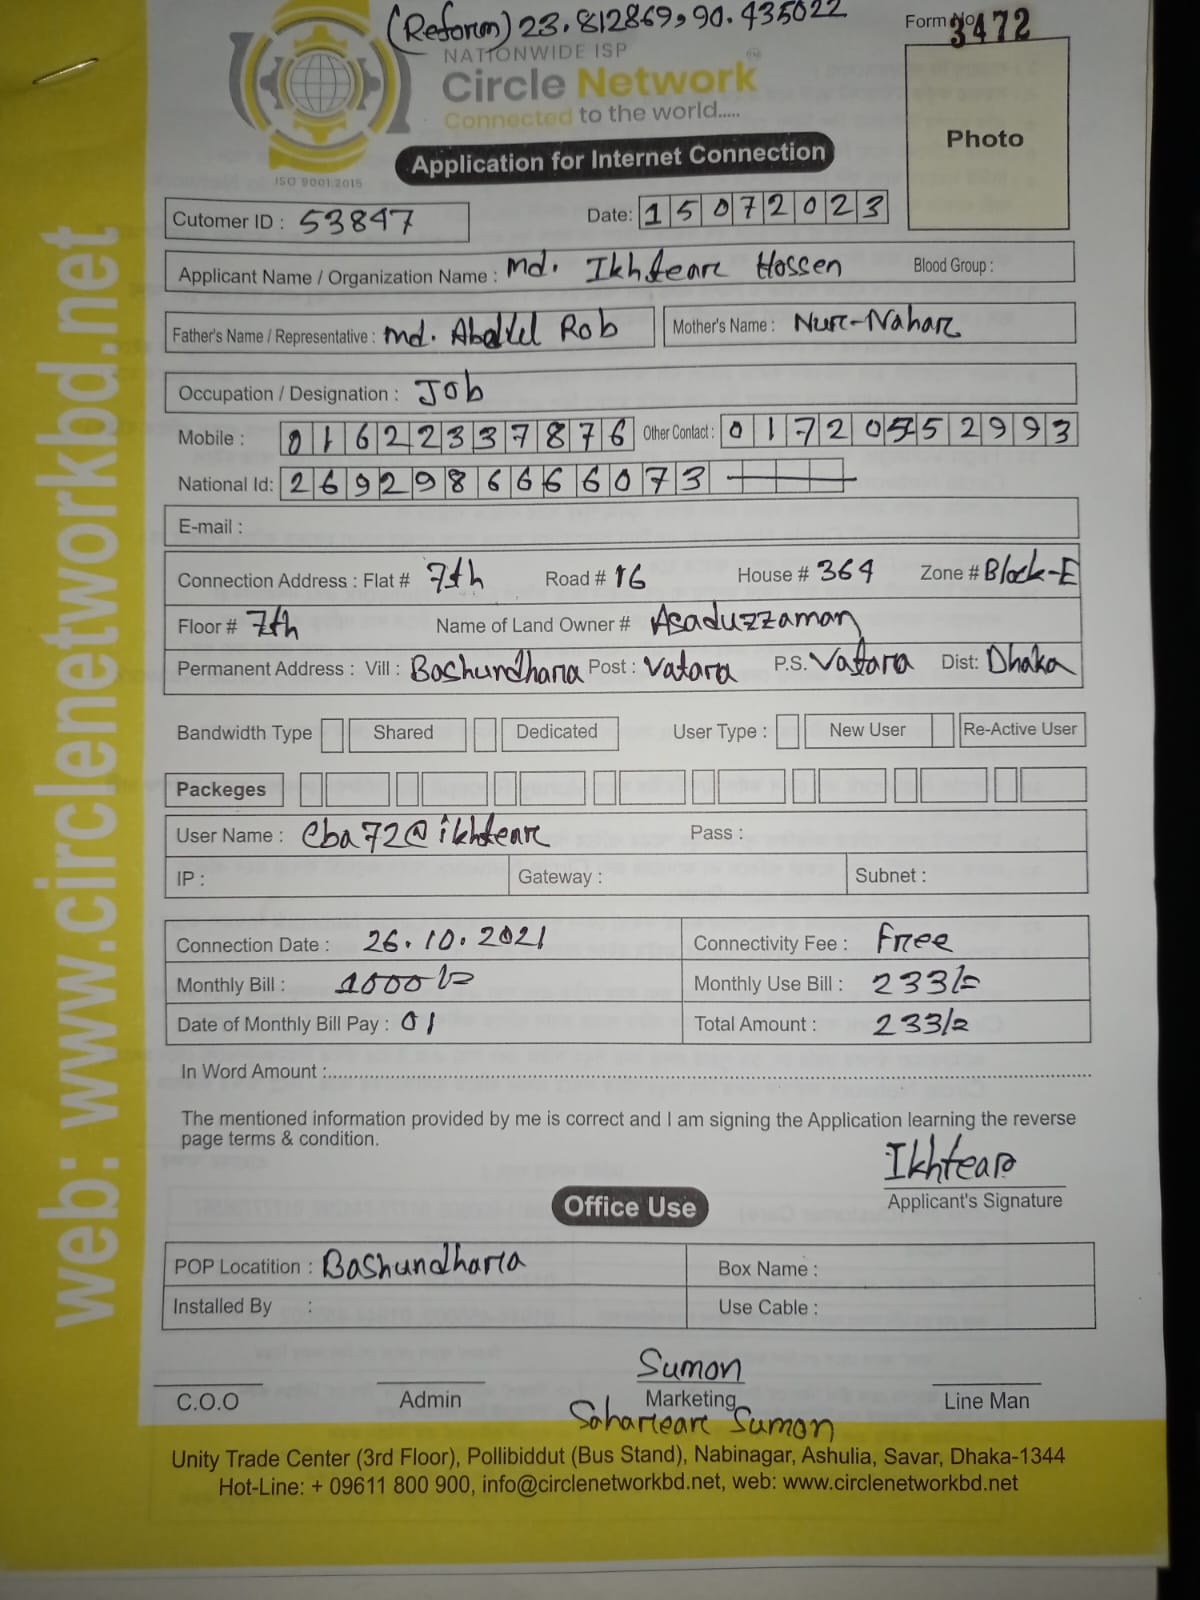 (Reform) 23.812869, 90.435022
Form No 3472
NATIONWIDE ISP
Circle Network
Connected to the world.....
ISO 9001:2015
Application for Internet Connection
Photo
web: www.circlenetworkbd.net
Cutomer ID : 53847 Date: 15072023
Applicant Name / Organization Name : Md. Ikhtear Hossen Blood Group :
Father's Name / Representative : Md. Abdul Rob Mother's Name : Nur-Nahar
Occupation / Designation : Job
Mobile : 01622337876 Other Contact : 01720552993
National Id: 2692986666073
E-mail :
Connection Address : Flat # 7th Road # 16 House # 364 Zone # Block-E
Floor # 7th Name of Land Owner # Asaduzzaman
Permanent Address : Vill : Bashundhara Post : Vatara P.S. Vatara Dist: Dhaka
Bandwidth Type Shared Dedicated User Type : New User Re-Active User
Packeges
User Name : cba72@ikhtear Pass :
IP : Gateway : Subnet :
Connection Date : 26.10.2021 Connectivity Fee : Free
Monthly Bill : 1000/= Monthly Use Bill : 233/=
Date of Monthly Bill Pay : 01 Total Amount : 233/=
In Word Amount :
The mentioned information provided by me is correct and I am signing the Application learning the reverse
page terms & condition.
Ikhtear
Applicant's Signature
Office Use
POP Locatition : Bashundhara Box Name :
Installed By : Use Cable :
Sumon
C.O.O Admin Marketing Line Man
Shariear Sumon
Unity Trade Center (3rd Floor), Pollibiddut (Bus Stand), Nabinagar, Ashulia, Savar, Dhaka-1344
Hot-Line: + 09611 800 900, info@circlenetworkbd.net, web: www.circlenetworkbd.net